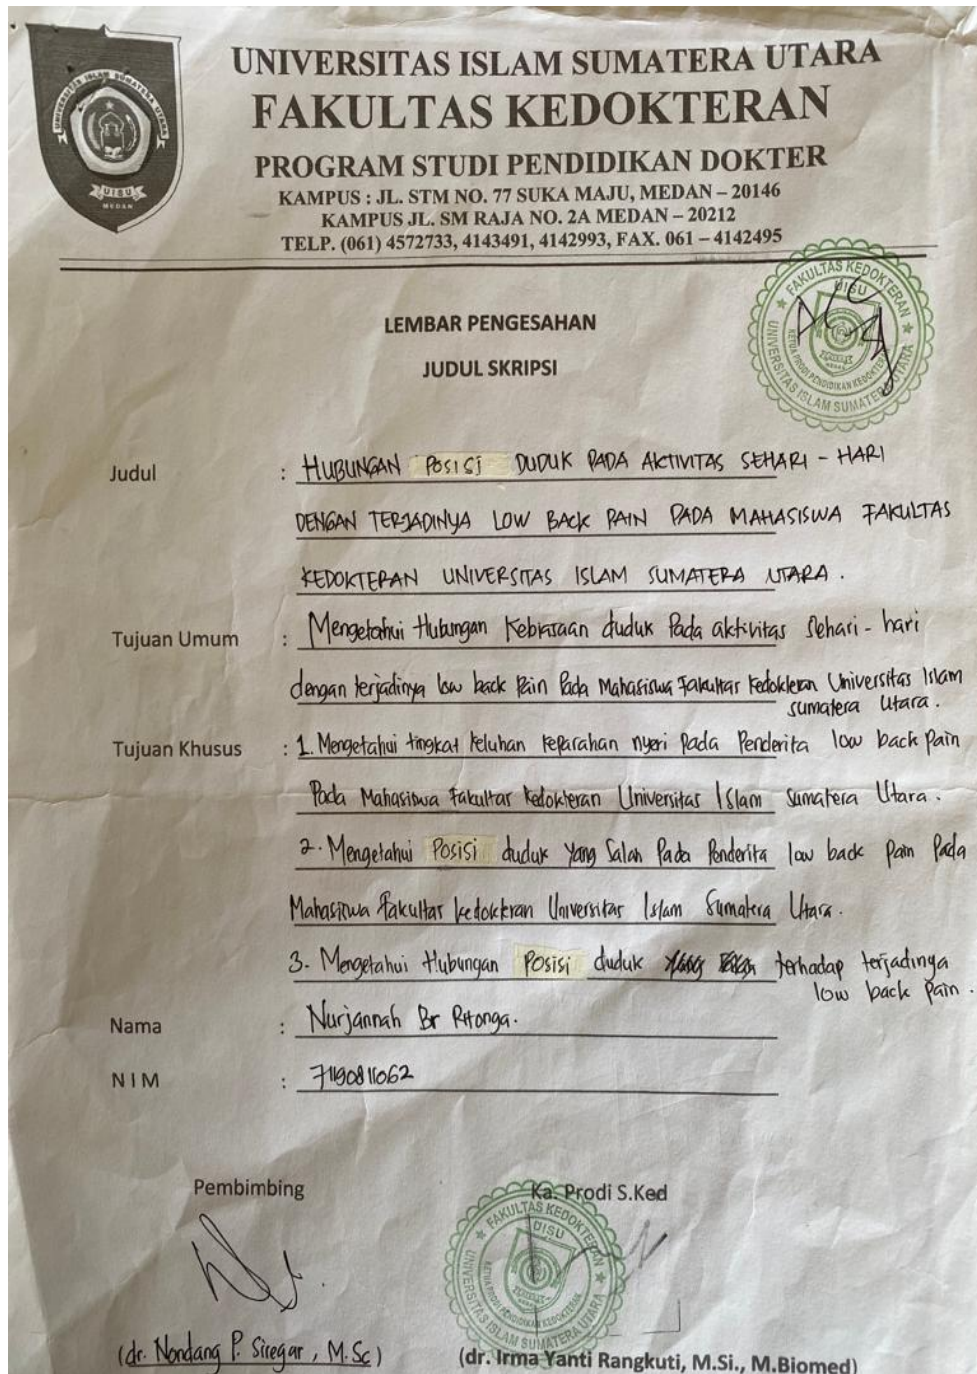 UNIVERSITAS ISLAM SUMATERA UTARA
FAKULTAS KEDOKTERAN
PROGRAM STUDI PENDIDIKAN DOKTER
KAMPUS : JL. STM NO. 77 SUKA MAJU, MEDAN – 20146
KAMPUS JL. SM RAJA NO. 2A MEDAN – 20212
TELP. (061) 4572733, 4143491, 4142993, FAX. 061 – 4142495
UNIVERSITAS ISLAM SUMATERA UTARA
UISU
MEDAN
FAKULTAS KEDOKTERAN
UISU
KETUA PRODI PENDIDIKAN KEDOKTERAN
UNIVERSITAS ISLAM SUMATERA UTARA
LEMBAR PENGESAHAN
JUDUL SKRIPSI
Judul : HUBUNGAN POSISI DUDUK PADA AKTIVITAS SEHARI - HARI
DENGAN TERJADINYA LOW BACK PAIN PADA MAHASISWA FAKULTAS
KEDOKTERAN UNIVERSITAS ISLAM SUMATERA UTARA .
Tujuan Umum : Mengetahui Hubungan Kebiasaan duduk Pada aktivitas Sehari - hari
dengan terjadinya low back Pain Pada Mahasiswa Fakultas Kedokteran Universitas Islam
sumatera Utara .
Tujuan Khusus : 1. Mengetahui tingkat keluhan keparahan nyeri Pada Penderita low back Pain
Pada Mahasiswa Fakultas Kedokteran Universitas Islam Sumatera Utara .
2. Mengetahui Posisi duduk Yang Salah Pada Penderita low back Pain Pada
Mahasiswa Fakultas Kedokteran Universitas Islam Sumatera Utara .
3. Mengetahui Hubungan Posisi duduk terhadap terjadinya
low back Pain .
Nama : Nurjannah Br Ritonga .
N I M : 71190811062
Pembimbing Ka. Prodi S.Ked
FAKULTAS KEDOKTERAN
UISU
KETUA PRODI PENDIDIKAN KEDOKTERAN
UNIVERSITAS ISLAM SUMATERA UTARA
(dr. Nondang P. Siregar , M.Sc) (dr. Irma Yanti Rangkuti, M.Si., M.Biomed)